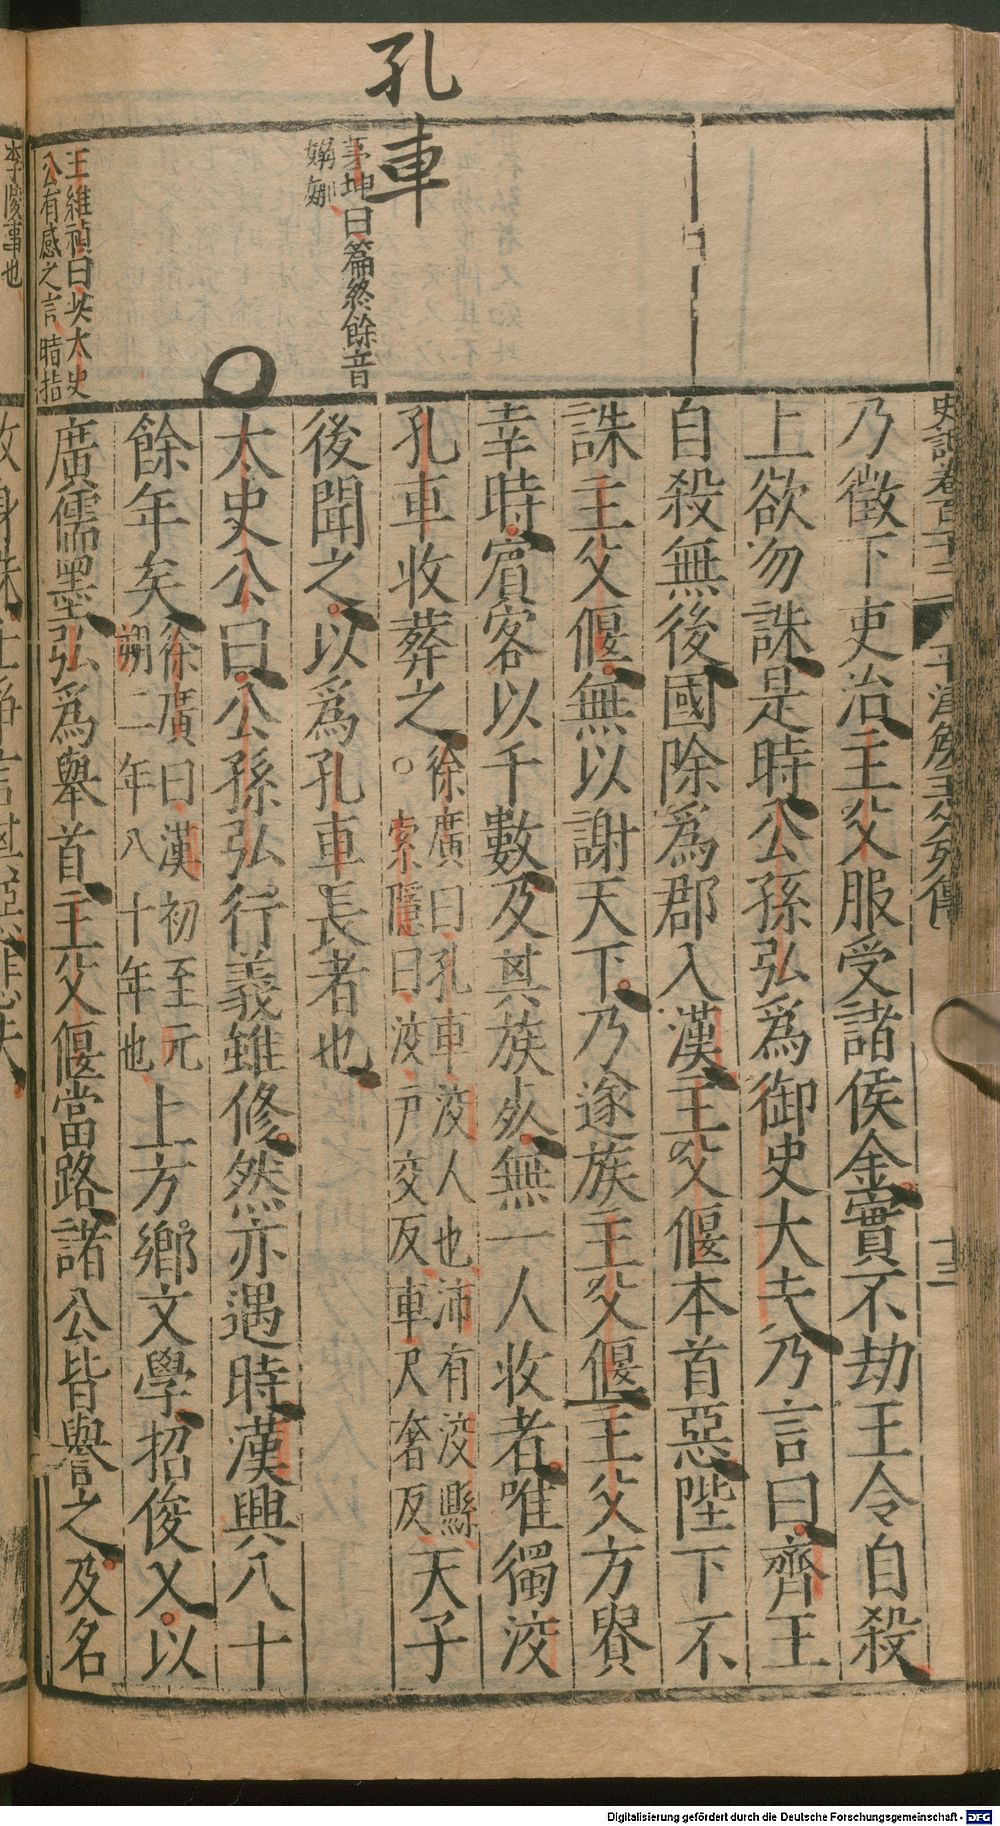 孔車
史記卷百十二 平津侯主父列傳 十三
乃徵下吏治主父服受諸侯金實不劫王令自殺
上欲勿誅是時公孫弘爲御史大夫乃言曰齊王
自殺無後國除爲郡入漢主父偃本首惡陛下不
誅主父偃無以謝天下乃遂族主父偃主父方貴
幸時賓客以千數及其族㱠無一人收者唯獨洨
孔車收葬之○徐廣曰孔車洨人也沛有洨縣
索隱曰洨戶交反車尺奢反天子
後聞之以爲孔車長者也
太史公曰公孫弘行義雖修然亦遇時漢興八十
餘年矣徐廣曰漢初至元
朔二年八十年也上方鄉文學招俊乂以
廣儒墨弘爲舉首主父偃當路諸公皆譽之及名
茅坤曰篇終餘音
嫋娜
王維禎曰此太史
公有感之言暗指
李慶事也
Digitalisierung gefördert durch die Deutsche Forschungsgemeinschaft - DFG